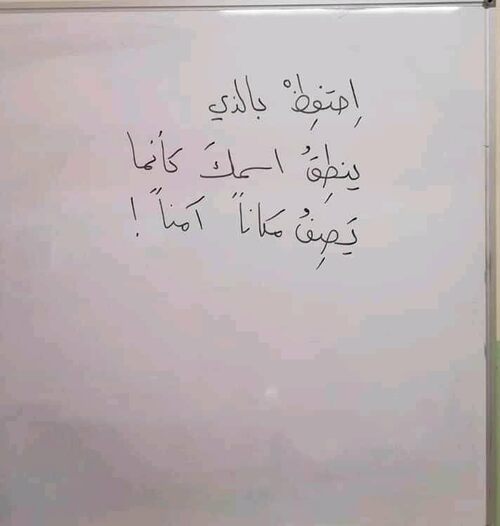 اِحتفِظْ بالذي
ينطِقُ اسمكَ كأنما
يَصِفُ مكاناً آمناً !